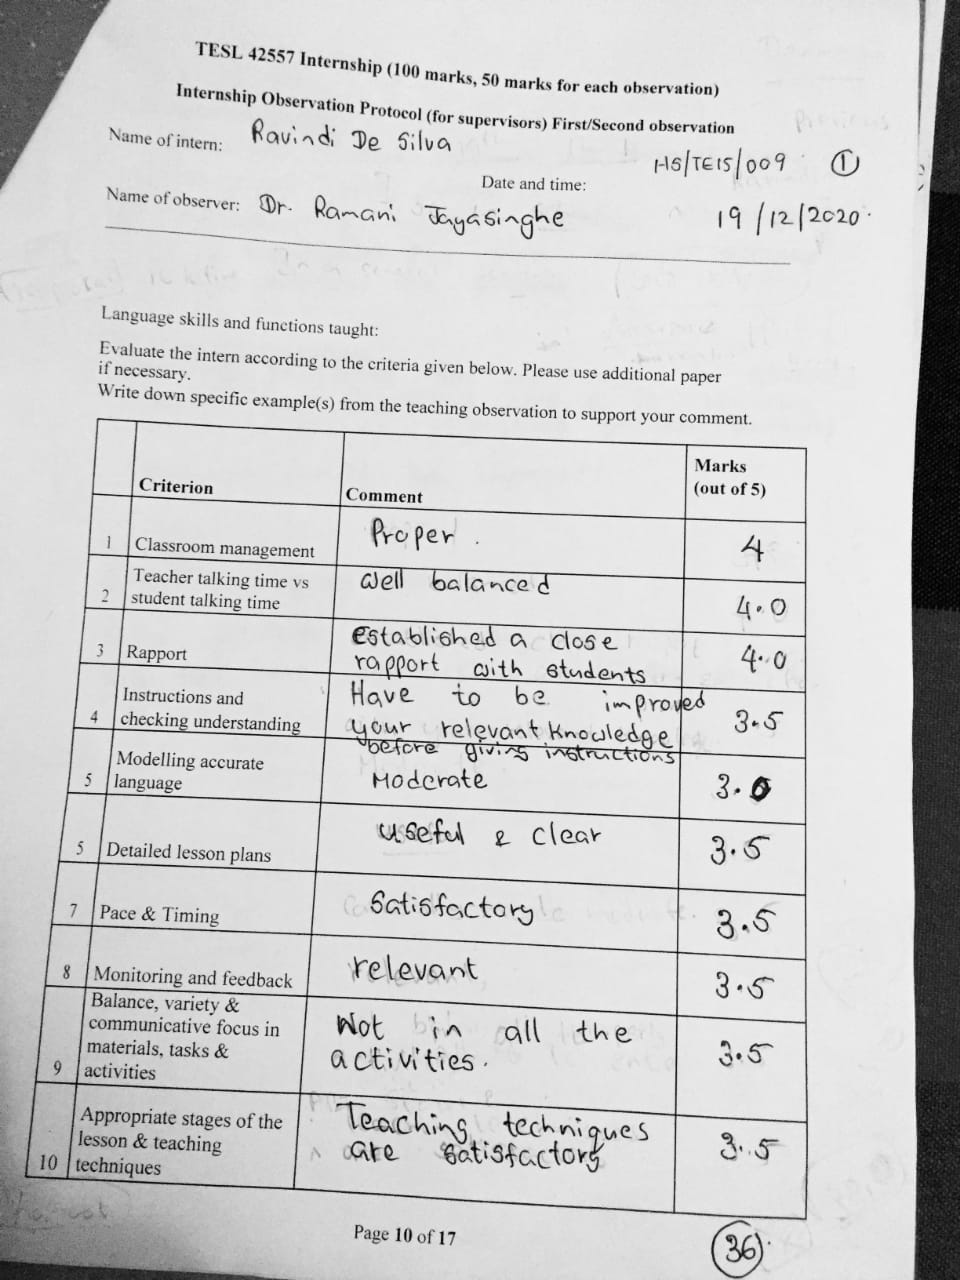 TESL 42557 Internship (100 marks, 50 marks for each observation)
Internship Observation Protocol (for supervisors) First/Second observation
Name of intern: Ravindi De Silva
HS/TEIS/009 1
Date and time:
Name of observer: Dr. Ramani Jayasinghe 19/12/2020.
Language skills and functions taught:
Evaluate the intern according to the criteria given below. Please use additional paper
if necessary.
Write down specific example(s) from the teaching observation to support your comment.
Criterion Comment Marks
(out of 5)
1 Classroom management Proper. 4
Teacher talking time vs Well balanced
2 student talking time 4.0
3 Rapport Established a close 4.0
rapport with students
Instructions and Have to be improved
4 checking understanding your relevant knowledge 3.5
before giving instructions
Modelling accurate
5 language Moderate 3.0
5 Detailed lesson plans useful & clear 3.5
7 Pace & Timing Satisfactory 3.5
8 Monitoring and feedback relevant 3.5
Balance, variety &
communicative focus in Not in all the
materials, tasks & activities. 3.5
9 activities
Appropriate stages of the Teaching techniques
lesson & teaching are satisfactory 3.5
10 techniques
Page 10 of 17
36.